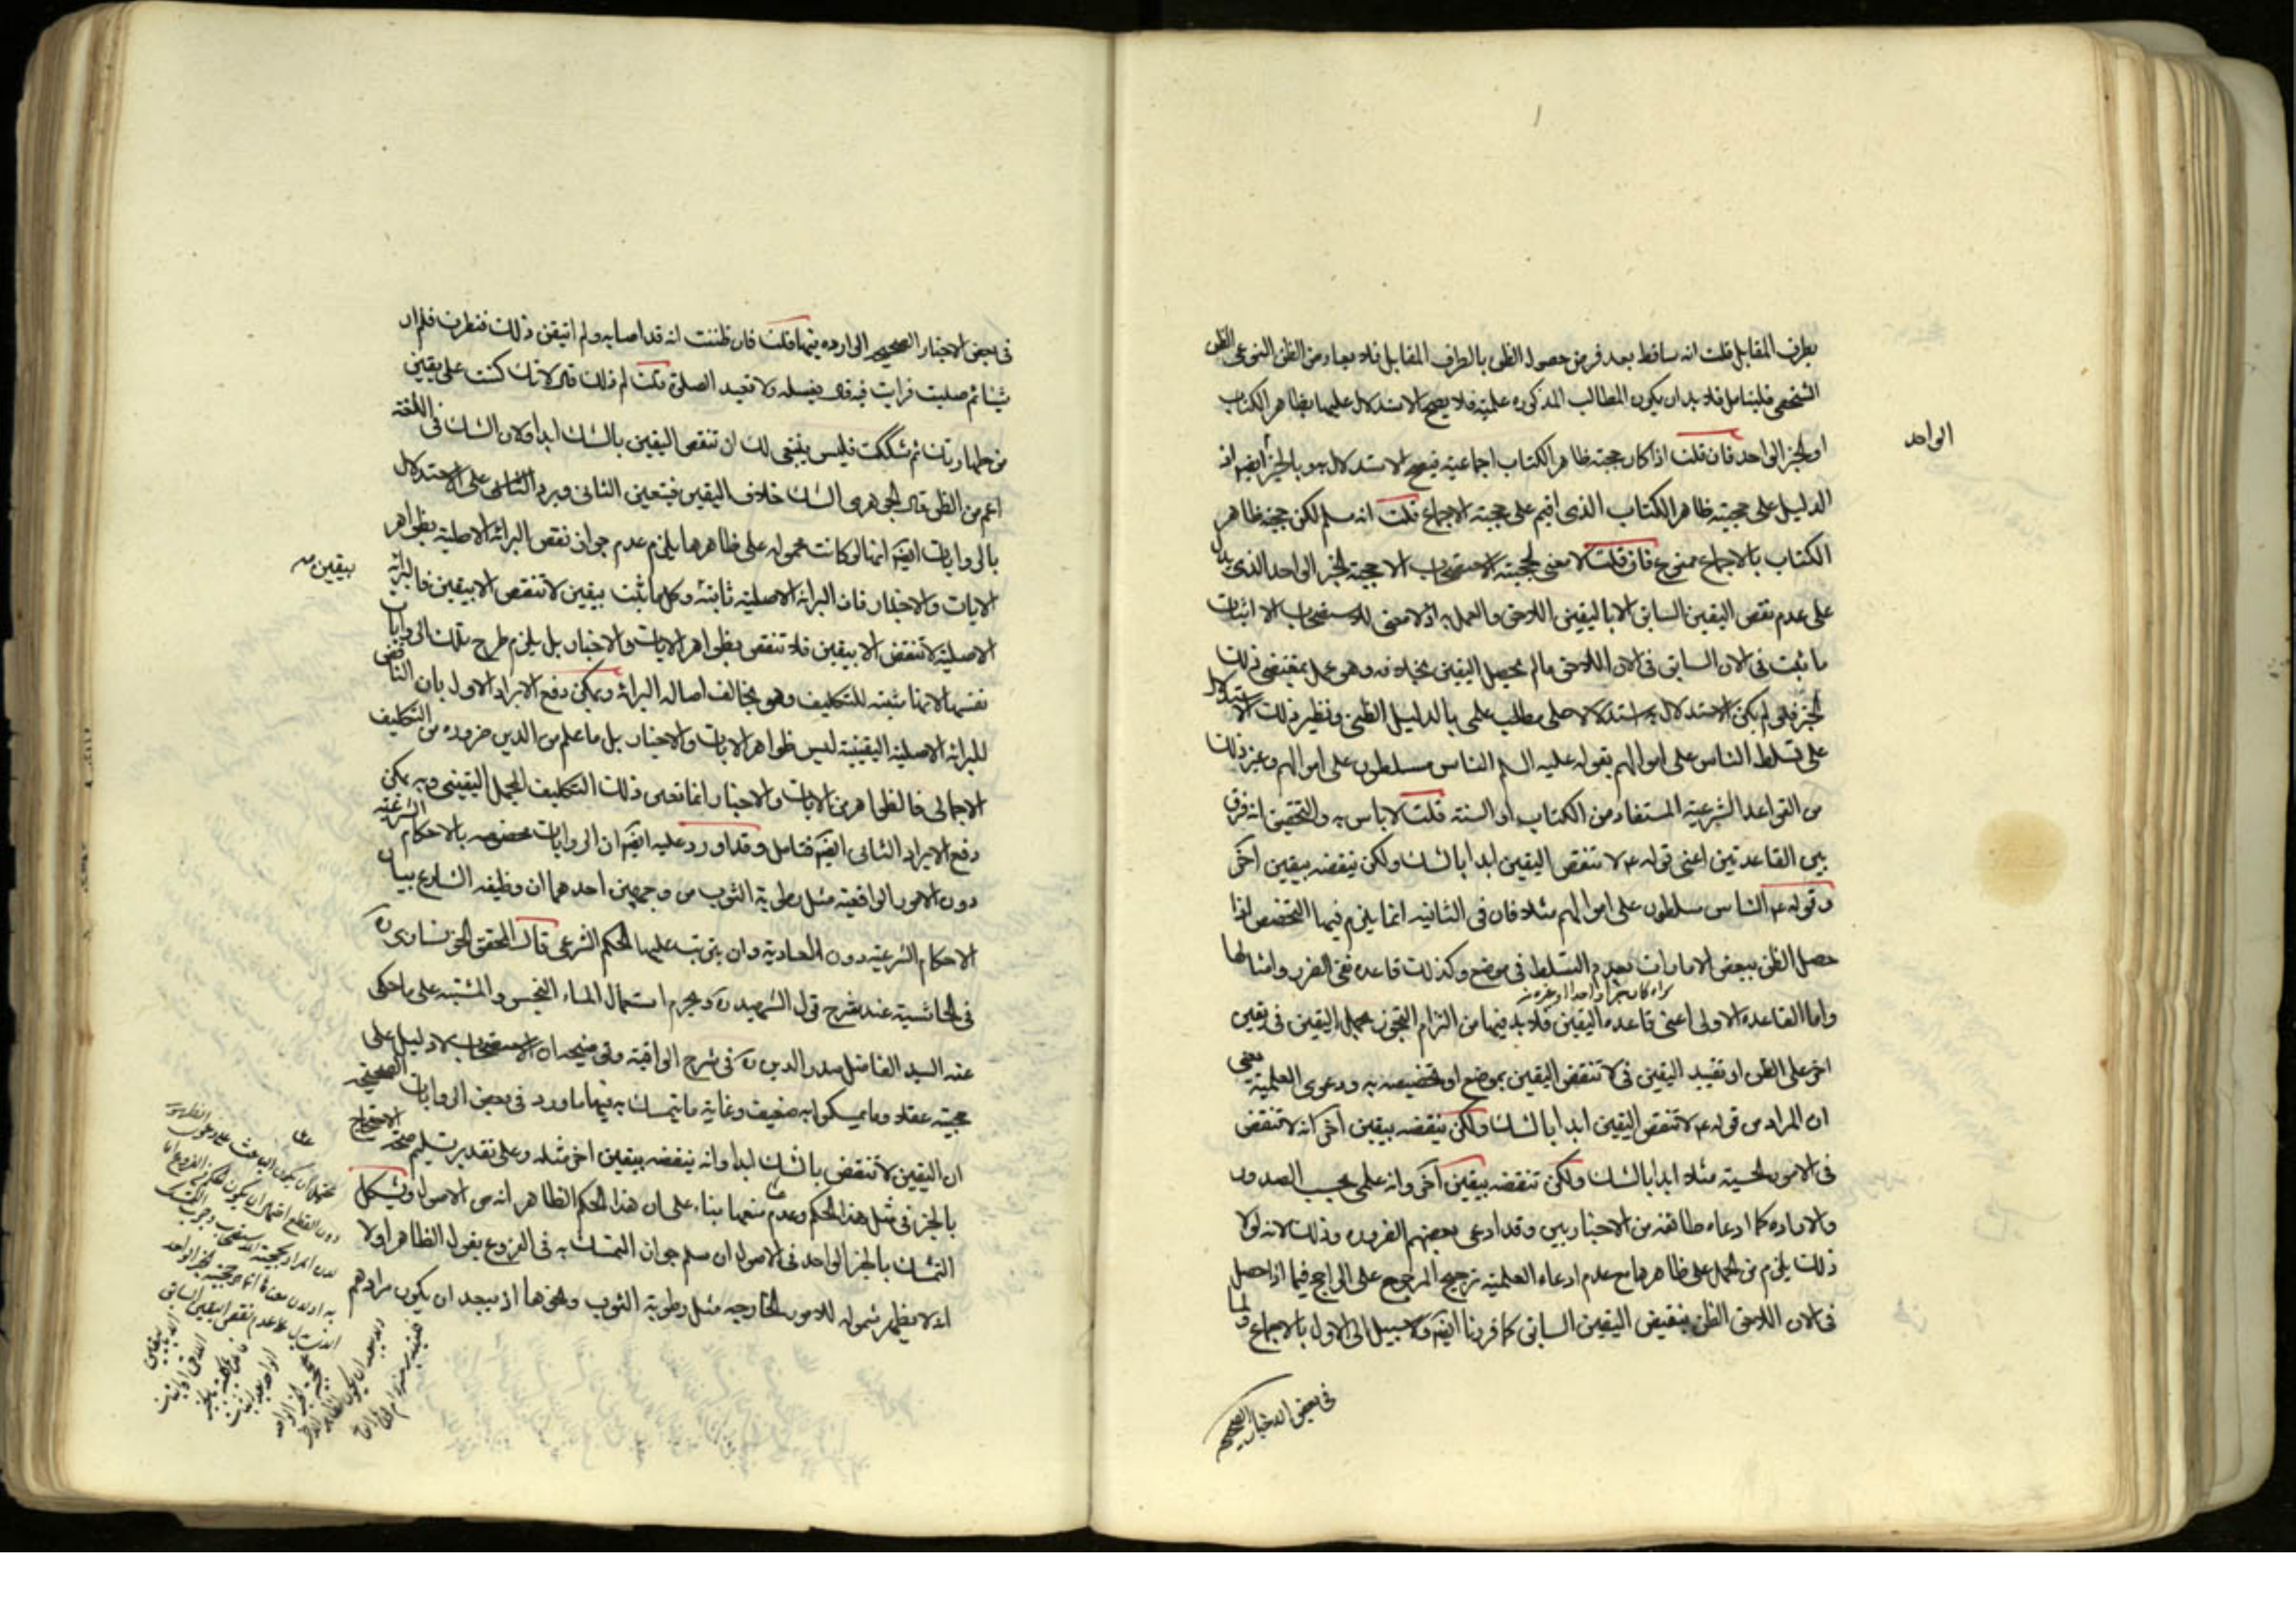 بطرف المقابل قلت انه ساقط بعد فرض حصول الظن بالطرف المقابل فلا يعباء من الظن النوعى الظن
الشخصى فليتامل فلا بد ان يكون المطالب المذكوره علمية فلا يصح الاستدلال عليها بظاهر الكتاب
او الخبر الواحد فان قلت اذا كان حجية ظاهر الكتاب اجماعية فيصح الاستدلال به وبالخبر ايضا اذ
الواحد
الدليل على حجية ظاهر الكتاب الذى اقيم على حجية الاجماع قلت انه سلم لكن حجية ظاهر
الكتاب بالاجماع ممنوع فان قلت لا معنى لحجية الاستصحاب الا حجية الخبر الواحد الذى يدل
على عدم نقض اليقين السابق الا باليقين اللاحق والعمل به اذ لا معنى للاستصحاب الا اثبات
ما ثبت فى الان السابق فى الان اللاحق مالم يحصل اليقين بخلافه وهو عمل بمقتضى ذلك
الخبر فلم يكن الاستدلال به استدلالا على مطلب علمى بالدليل الظنى ونظير ذلك الاستدلال
على تسلط الناس على اموالهم بقوله عليه السلم الناس مسلطون على اموالهم وغير ذلك
من القواعد الشرعية المستفاد من الكتاب او السنة قلت لا باس به والتحقيق انه فرق
بين القاعدتين اعنى قوله ع لا تنقض اليقين ابدا بالشك ولكن ينقضه بيقين آخر
وقوله ع الناس مسلطون على اموالهم مثلا فان فى الثانيه انما يلزم فيها التخصيص اذا
حصل الظن ببعض الامارات بعدم التسلط فى موضع وكذلك قاعده نفى الضرر وامثالها
واما القاعدة الاولى اعنى قاعده اليقين فلا بد فيها من التزام التجوز بحمل اليقين فى بيقين
اخر على الظن او تقييد اليقين فى لا تنقض اليقين بموضع او تخصيصه به ودعوى العلمية يعنى
ان المراد من قوله ع لا تنقض اليقين ابدا بالشك ولكن ينقضه بيقين آخر انه لا تنقض
فى الامور الحسية مثلا ابدا بالشك ولكن تنقضه بيقين آخر وانه علمى بحسب الصدور
والاراده كما ادعاه طائفة من الاخباريين وقد ادعى بعضهم الضروره وذلك لانه لولا
ذلك يلزم من الحمل على ظاهرها مع عدم ادعاء العلمية ترجيح المرجوح على الراجح فيما اذا حصل
فى الان اللاحق الظن بنقيض اليقين السابق كما قررنا ايضا ولا سبيل الى الاول بالاجماع ولما
فى بعض الاخبار الصحيحه
فى بعض الاخبار الصحيحه الوارده فيها قلت فان ظننت انه قد اصابه ولم اتيقن ذلك فنظرت فلم ار
شيئا ثم صليت فرايت فيه قال يغسله ولا تعيد الصلوة قلت لم ذلك قال لانك كنت على يقين
من طهارتك ثم شككت فليس ينبغى لك ان تنقض اليقين بالشك ابدا ولان الشك فى اللغة
اعم من الظن قال الجوهرى الشك خلاف اليقين فيتعين الثانى ويرد الثانى على الاستدلال
بالروايات ايضا انها لو كانت محموله على ظاهرها يلزم عدم جواز نقض البرائة الاصلية بظواهر
الايات والاخبار فان البرائة الاصلية ثابتة وكل ما ثبت بيقين لا تنقض الا بيقين فالبرائة
بيقين
الاصلية لا تنقض الا بيقين فلا تنقض بظواهر الايات والاخبار بل يلزم طرح تلك الروايات
نفسها لانها مثبته للتكليف وهو يخالف اصالة البرائة ويمكن دفع الايراد الاول بان الناقض
للبرائة الاصلية اليقينية ليس ظواهر الايات والاخبار بل ما علم من الدين ضروره من التكليف
الاجمالى فالظواهر من الايات والاخبار انما تعين ذلك التكليف المجمل اليقينى وبه يمكن
دفع الايراد الثانى ايضا فتامل وقد اورد عليه ايضا ان الروايات مخصوصه بالاحكام الشرعية
دون الامور الواقعية مثل رطوبة الثوب من وجهين احدهما ان وظيفه الشارع بيان
الاحكام الشرعية دون العادية وان يترتب عليها الحكم الشرعى قال المحقق الخونسارى ره
فى الحاشية عند شرح قول الشهيد ره ويحرم استعمال الماء النجس والمشتبه على ما حكى
عنه السيد الفاضل صدر الدين ره فى شرح الوافية وتوضيحه ان الاستصحاب لا دليل على
حجيته عقلا وما تمسكوا به ضعيف وغاية ما يتمسك به فيها ما ورد فى بعض الروايات الصحيحه
ان اليقين لا تنقض بالشك ابدا وانه ينقضه بيقين اخر مثله وعلى تقدير تسليم صحة الاحتجاج
بالخبر فى مثل هذا الحكم وعدم منعها بناء على ان هذا الحكم الظاهر انه من الاصول ويشكل
التمسك بالخبر الواحد فى الاصول ان سلم جواز التمسك به فى الفروع بقول الظاهر اولا
انه لا يظهر شموله للامور الخارجيه مثل رطوبة الثوب ونحوها اذ يبعد ان يكون مرادهم